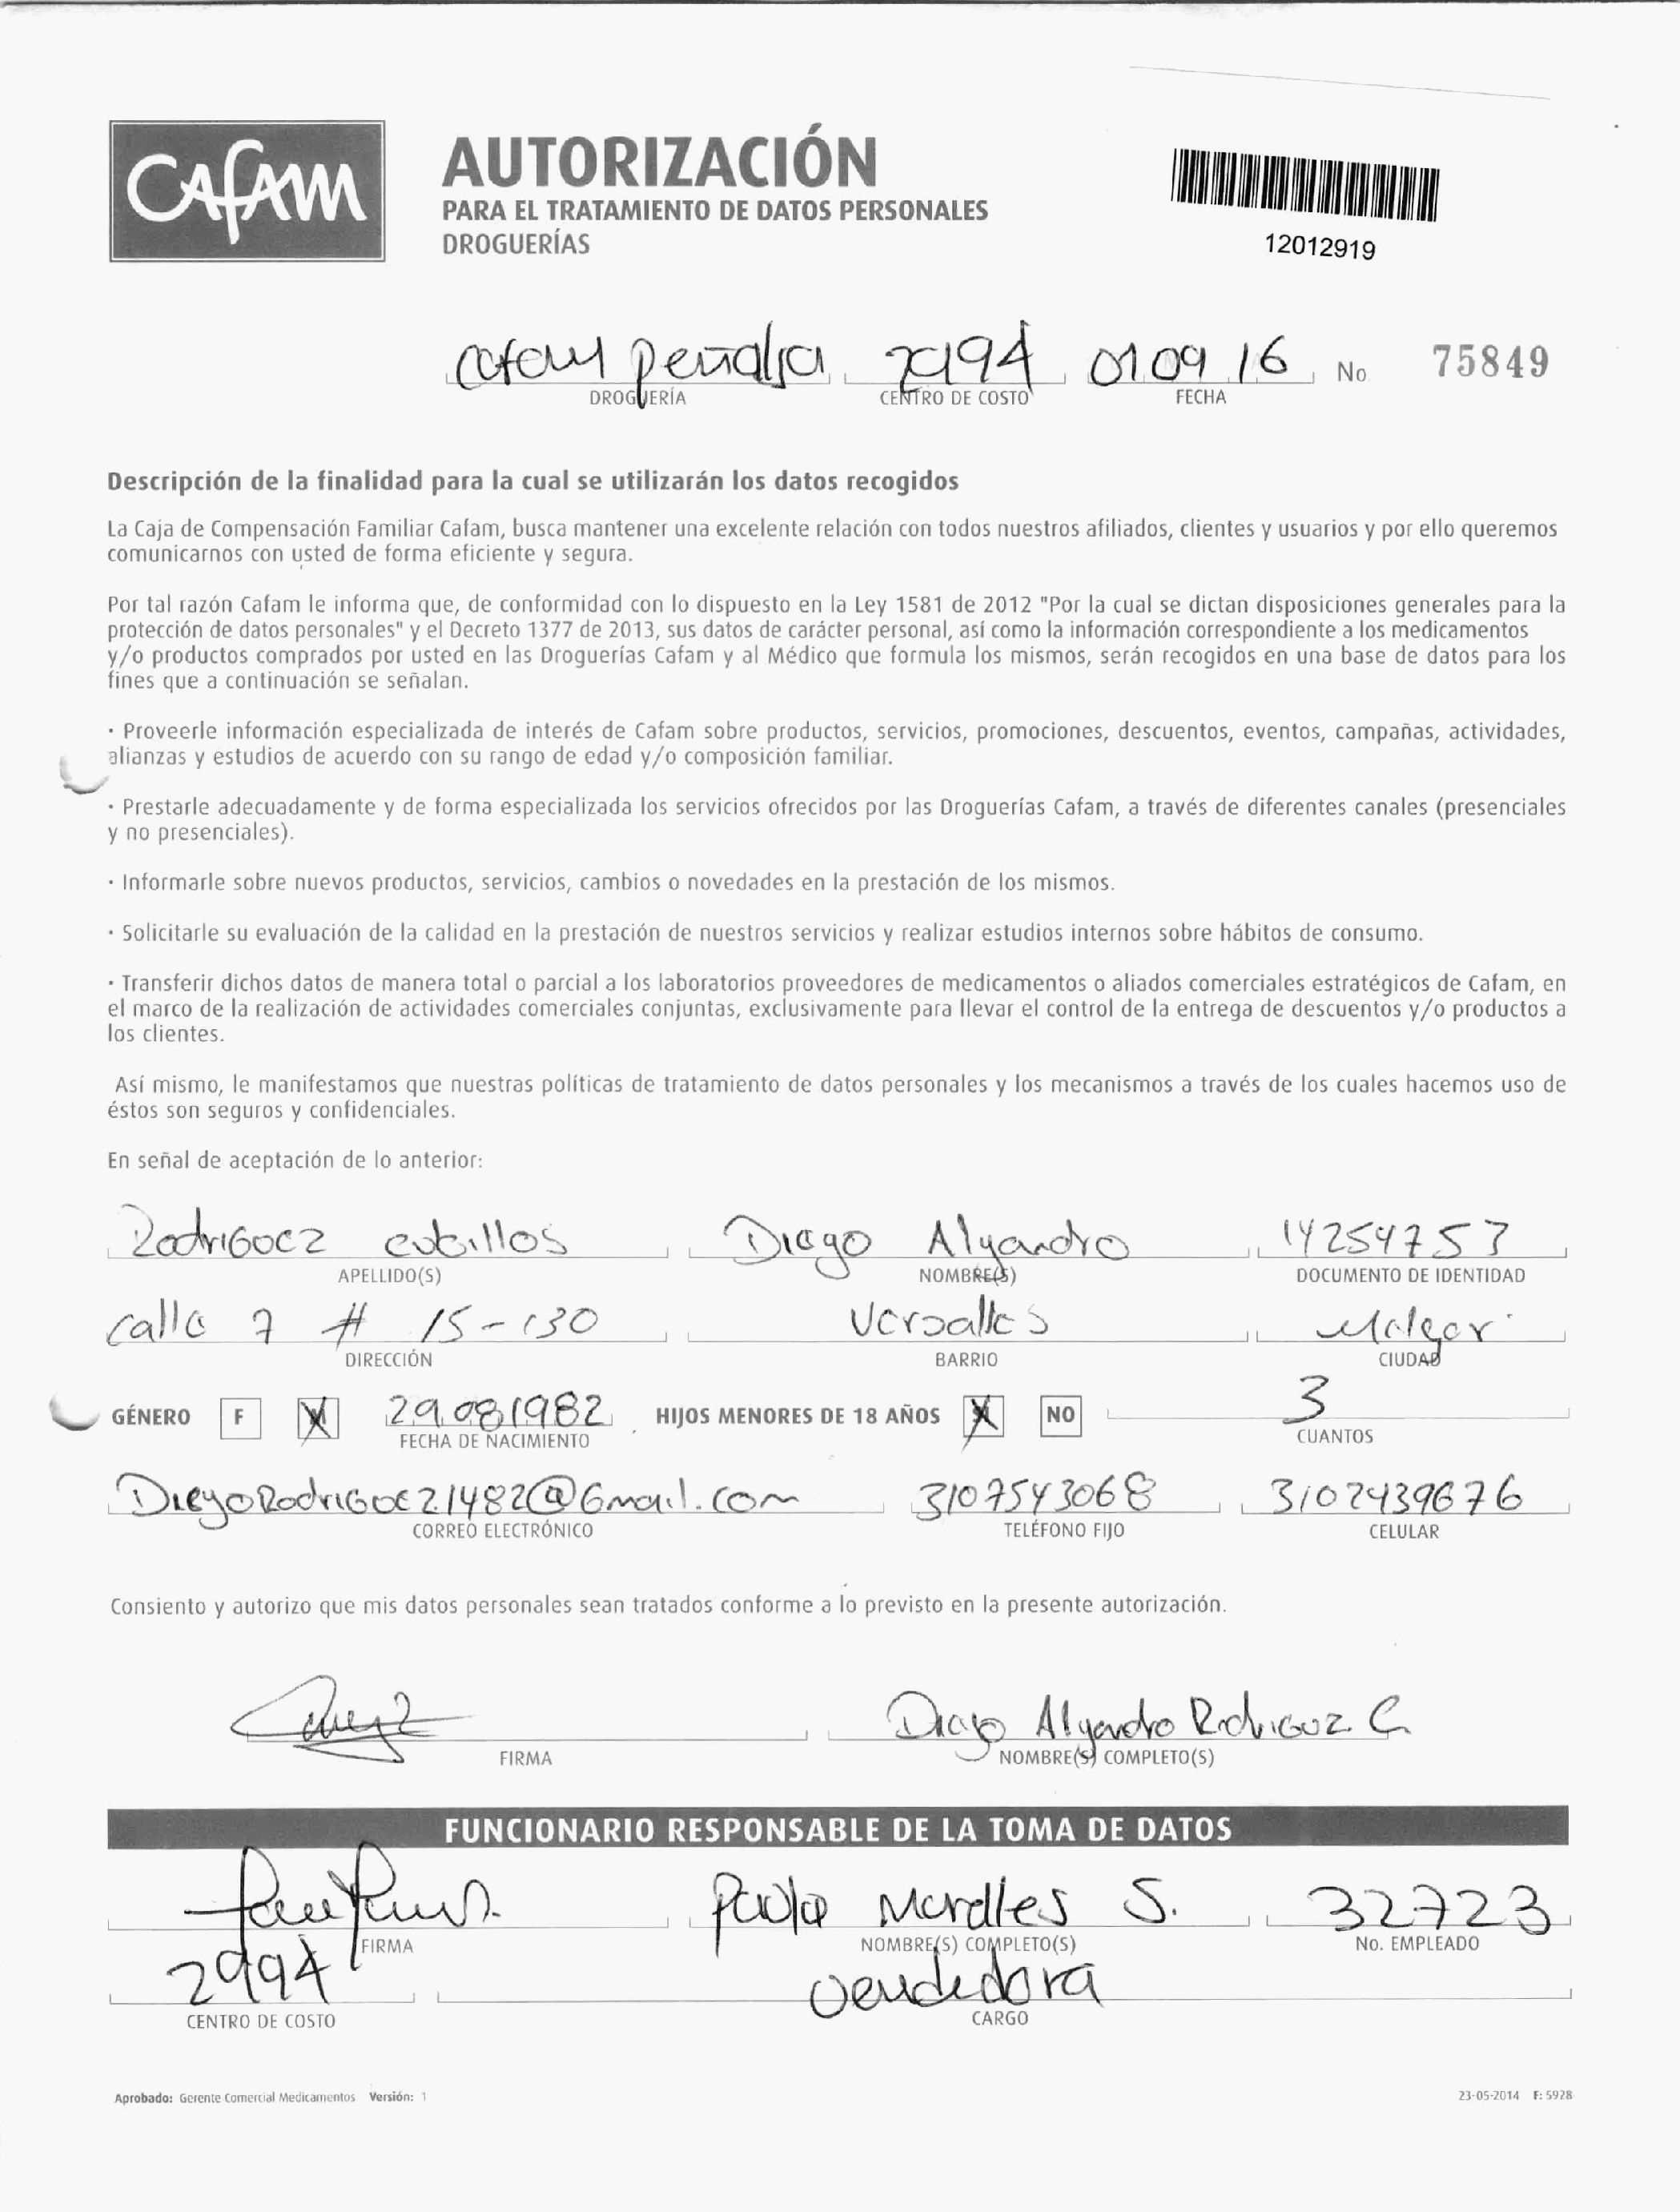 CAFAM
AUTORIZACIÓN
PARA EL TRATAMIENTO DE DATOS PERSONALES
DROGUERÍAS
12012919
Cafam peñalisa 2994 01 09 16 No 75849
DROGUERÍA CENTRO DE COSTO FECHA
Descripción de la finalidad para la cual se utilizarán los datos recogidos
La Caja de Compensación Familiar Cafam, busca mantener una excelente relación con todos nuestros afiliados, clientes y usuarios y por ello queremos
comunicarnos con usted de forma eficiente y segura.
Por tal razón Cafam le informa que, de conformidad con lo dispuesto en la Ley 1581 de 2012 "Por la cual se dictan disposiciones generales para la
protección de datos personales" y el Decreto 1377 de 2013, sus datos de carácter personal, así como la información correspondiente a los medicamentos
y/o productos comprados por usted en las Droguerías Cafam y al Médico que formula los mismos, serán recogidos en una base de datos para los
fines que a continuación se señalan.
· Proveerle información especializada de interés de Cafam sobre productos, servicios, promociones, descuentos, eventos, campañas, actividades,
alianzas y estudios de acuerdo con su rango de edad y/o composición familiar.
· Prestarle adecuadamente y de forma especializada los servicios ofrecidos por las Droguerías Cafam, a través de diferentes canales (presenciales
y no presenciales).
· Informarle sobre nuevos productos, servicios, cambios o novedades en la prestación de los mismos.
· Solicitarle su evaluación de la calidad en la prestación de nuestros servicios y realizar estudios internos sobre hábitos de consumo.
· Transferir dichos datos de manera total o parcial a los laboratorios proveedores de medicamentos o aliados comerciales estratégicos de Cafam, en
el marco de la realización de actividades comerciales conjuntas, exclusivamente para llevar el control de la entrega de descuentos y/o productos a
los clientes.
Así mismo, le manifestamos que nuestras políticas de tratamiento de datos personales y los mecanismos a través de los cuales hacemos uso de
éstos son seguros y confidenciales.
En señal de aceptación de lo anterior:
Rodriguez cubillos Diego Alejandro 14254753
APELLIDO(S) NOMBRE(S) DOCUMENTO DE IDENTIDAD
calle 7 # 15-130 Versalles Melgar
DIRECCIÓN BARRIO CIUDAD
GÉNERO F M 29 08 1982 HIJOS MENORES DE 18 AÑOS NO 3
FECHA DE NACIMIENTO CUANTOS
DiegoRodriguez1482@Gmail.com 3107543068 3102439676
CORREO ELECTRÓNICO TELÉFONO FIJO CELULAR
Consiento y autorizo que mis datos personales sean tratados conforme a lo previsto en la presente autorización.
Diego Alejandro Rodriguez C.
FIRMA NOMBRE(S) COMPLETO(S)
FUNCIONARIO RESPONSABLE DE LA TOMA DE DATOS
Paola Morales S. 32723
FIRMA NOMBRE(S) COMPLETO(S) No. EMPLEADO
2994 vendedora
CENTRO DE COSTO CARGO
Aprobado: Gerente Comercial Medicamentos Versión: 1 23-05-2014 F: 5928